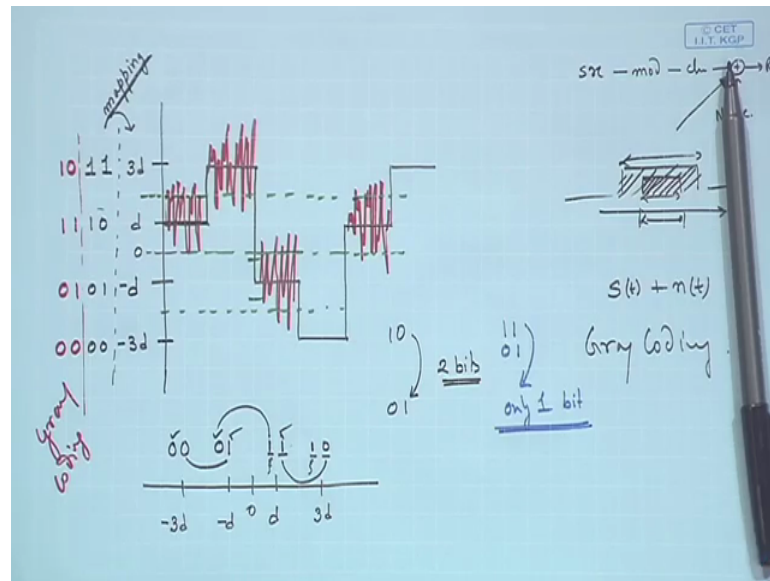 © CET
I.I.T. KGP
mapping
src – mod – ch
10 11 3d
11 10 d
0
01 01 -d
00 00 -3d
Gray
Coding
S(t) + n(t)
Gray Coding.
10
01
2 bits
11
01
only 1 bit
00 01 11 10
-3d -d 0 d 3d